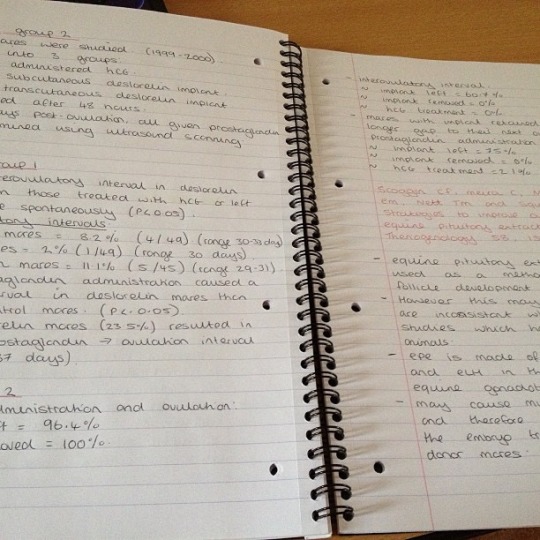 group 2
ares were studied (1999-2000)
into 3 groups.
administered hCG
subcutaneous deslorelin implant
transcutaneous deslorelin implant
ed after 48 hours.
ays post-ovulation, all given prostaglandin
mined using ultrasound scanning
roup 1
terovulatory interval in deslorelin
n those treated with hCG or left
e spontaneously (P<0.05).
tory intervals
mares = 8.2% (4/49) (range 30-38 day)
es = 2% (1/49) (range 30 days).
n mares = 11.1% (5/45) (range 29-31)
aglandin administration caused a
rval in deslorelin mares than
ntrol mares. (P<0.05).
relin mares (23.5%) resulted in
ostaglandin → ovulation interval
37 days)
2
dministration and ovulation:
ft = 96.4%
oved = 100%
- interovulatory interval.
~ implant left = 60.7%
~ implant removed = 0%
~ hCG treatment = 0%
- mares with implant retained
longer gap to their next o
prostaglandin administration
~ implant left = 75%
~ implant removed = 0%
~ hCG treatment = 21%
CF, C, N
EM, Nett TM and Squ
Strategies to improve o
equine pituitary extract
Theriogenology 58 15
- equine pituitary ext
used as a metho
follicle development
- However this may
are inconsistent wi
studies which ha
animals.
- EPE is made of
and eLH in th
equine gonadot
- may cause mu
and therefore
the embryo tr
donor mares.